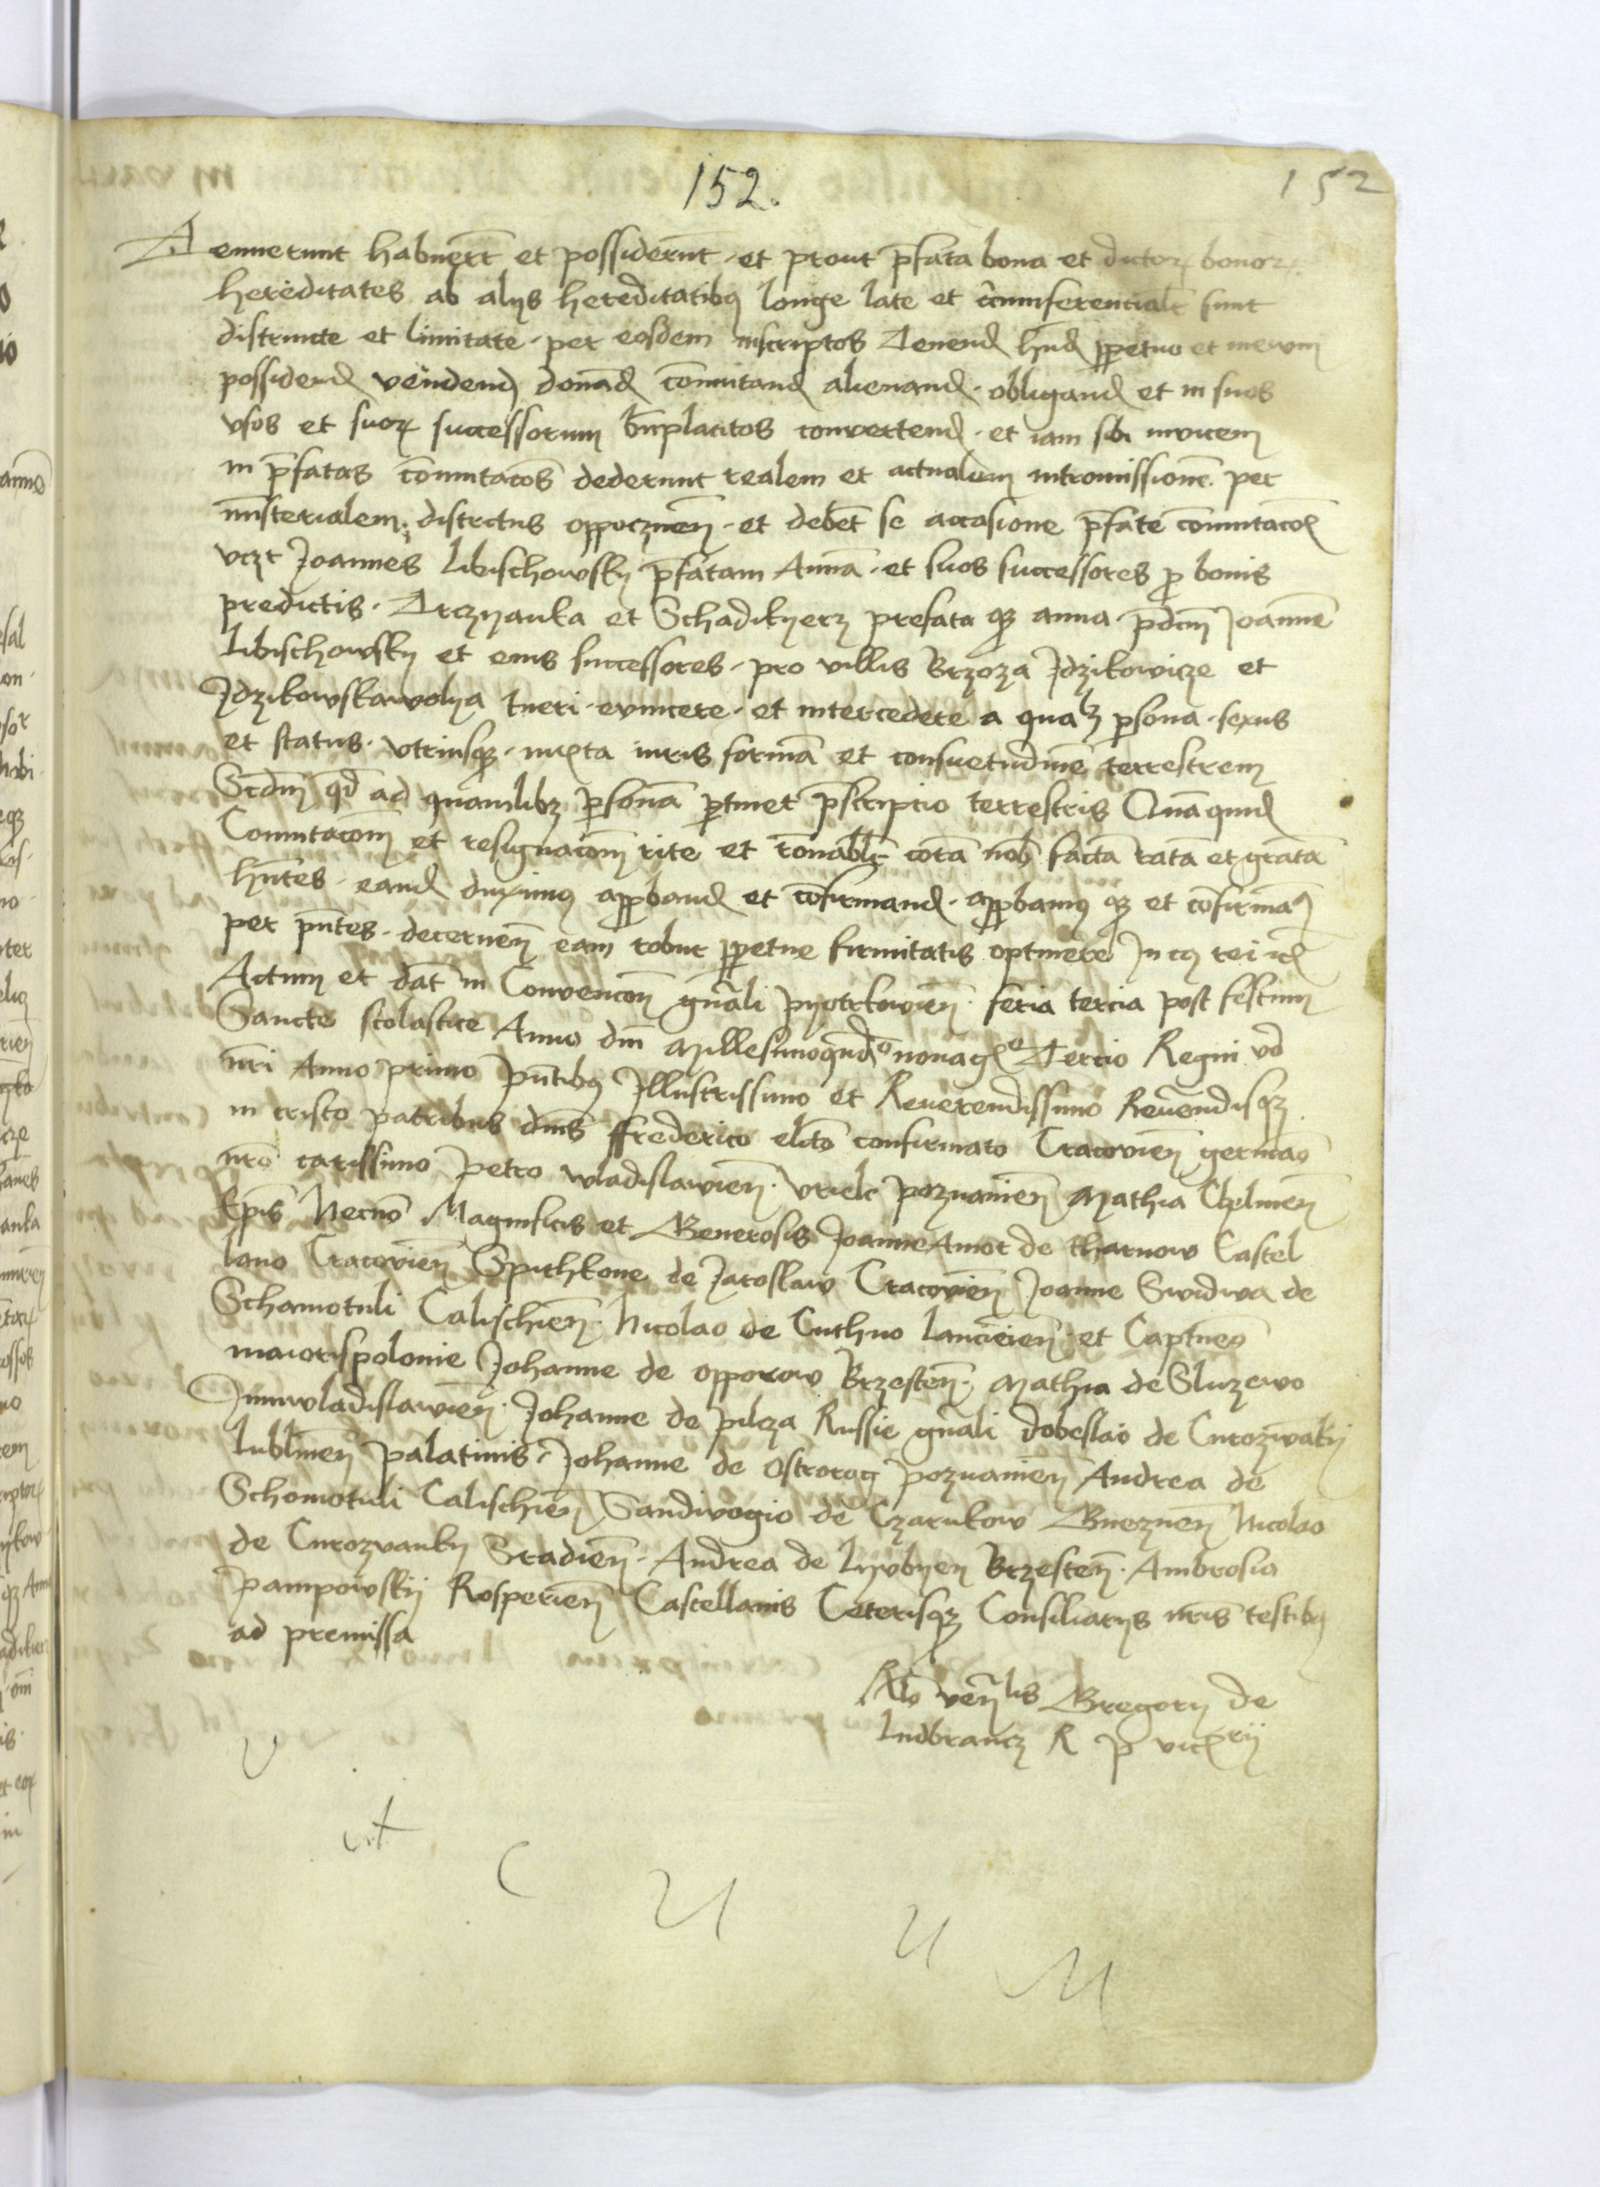 152.
152
Tenuerunt habuerūt et possiderūt · et prout p̄fata bona et dictoꝝ bonoꝝ
hereditates ab alijs hereditatibꝯ longe late et circumferencialr̄ sunt
distincte et limitate · per eosdem inscriptos Tenend̄ hn̄d̄ ꝑpetuo et in evum
possidend̄ vendend̄ donād̄ com̄utand̄ alienand̄ · obligand̄ et in suos
vsos et suoꝝ successorum bn̄placitos convertend̄ · et iam sibi invicem
in p̄fatas com̄utacōs dederunt realem et actualem intromissionē per
ministerialem districtus oppocznen̄ · et debēt se accasione p̄fate com̄utacōꝭ
vczt Joannes Libischowsky p̄fatam Annā · et suos successores ꝓ bonis
predictis · Trcznanka et Schadikyerz prefata qꝫ anna · p̄dcm̄ Joannē
Libischowsky et eius successores · pro villis Brzoza Jdzikowicze et
Jdzikowskawolya tueri · evincere · et intercedere a qualꝫ ꝑsona · sexus
et status · vtriusqꝫ · iuxta iuris formā et consuetudinē terrestrem
Scdm̄ qd̄ ad quamlibꝫ ꝑsonā ꝑtinet p̄scriptio terrestris Quāquid̄
Com̄utacōm̄ et resignacōm̄ rite et rōnabilr̄ corā nob̄ factā ratā et gratā
hn̄tes · eand̄ duximꝯ approband̄ et cōfirmand̄ · approbamꝯ qꝫ et cōfirmamꝯ
per pn̄tes · decernen̄ eam robur ꝑpetue firmitatis optinere In cꝯ rei ꝛcꝭ
Actum et dat̄ in Convencōn̄ gn̄ali pyotrkovien̄ · feria tercia post festum
Sancte scolastice Anno dm̄ Millesimoquad° nonagꝭ° Tercio Regni v°
nr̄i Anno primo Pn̄tibꝯ Illustrissimo et Reverendissimo Reverendisqꝫ
in cristo patribus dn̄is ffrederico elc̄to confirmato Cracovien̄ germāo
nr̄o carissimo Petro wladislavien̄ · vriele poznanien̄ Mathia Chelmen̄
Ep̄is Necnō Magnificis et Generosis Joanne Amor de tharnow Castel
lano Cracovien̄ Spithkone de Jaroslaw Cracovien̄ Joanne Swidwa de
Schamotuli Calischien̄ · Nicolao de Cuthno lancicien̄ · et Capitneo
maiorispolonie Johanne de opporow Brzesten̄ · Mathia de Sluzewo
Juniwladislavien̄ · Johanne de pilcza Russie gn̄ali dobeslao de Curozwaky
lublinen̄ Palatinis · Johanne de Ostrorog poznanien̄ Andrea de
Schomotuli Calischien̄ Sandivogio de Czarnkow Gneznen̄ Nicolao
de Curozvanky Siradien̄ · Andrea de Lyvbyen Brzesten̄ · Ambrosio
Pampowsky Rosperien̄ Castellanis Ceterisqꝫ Consiliarijs nr̄is testibꝯ
ad premissa
Rlo ven̄lis Gregory de
ludbrancz R P vicꝭrij
V
A
C
U
U
M